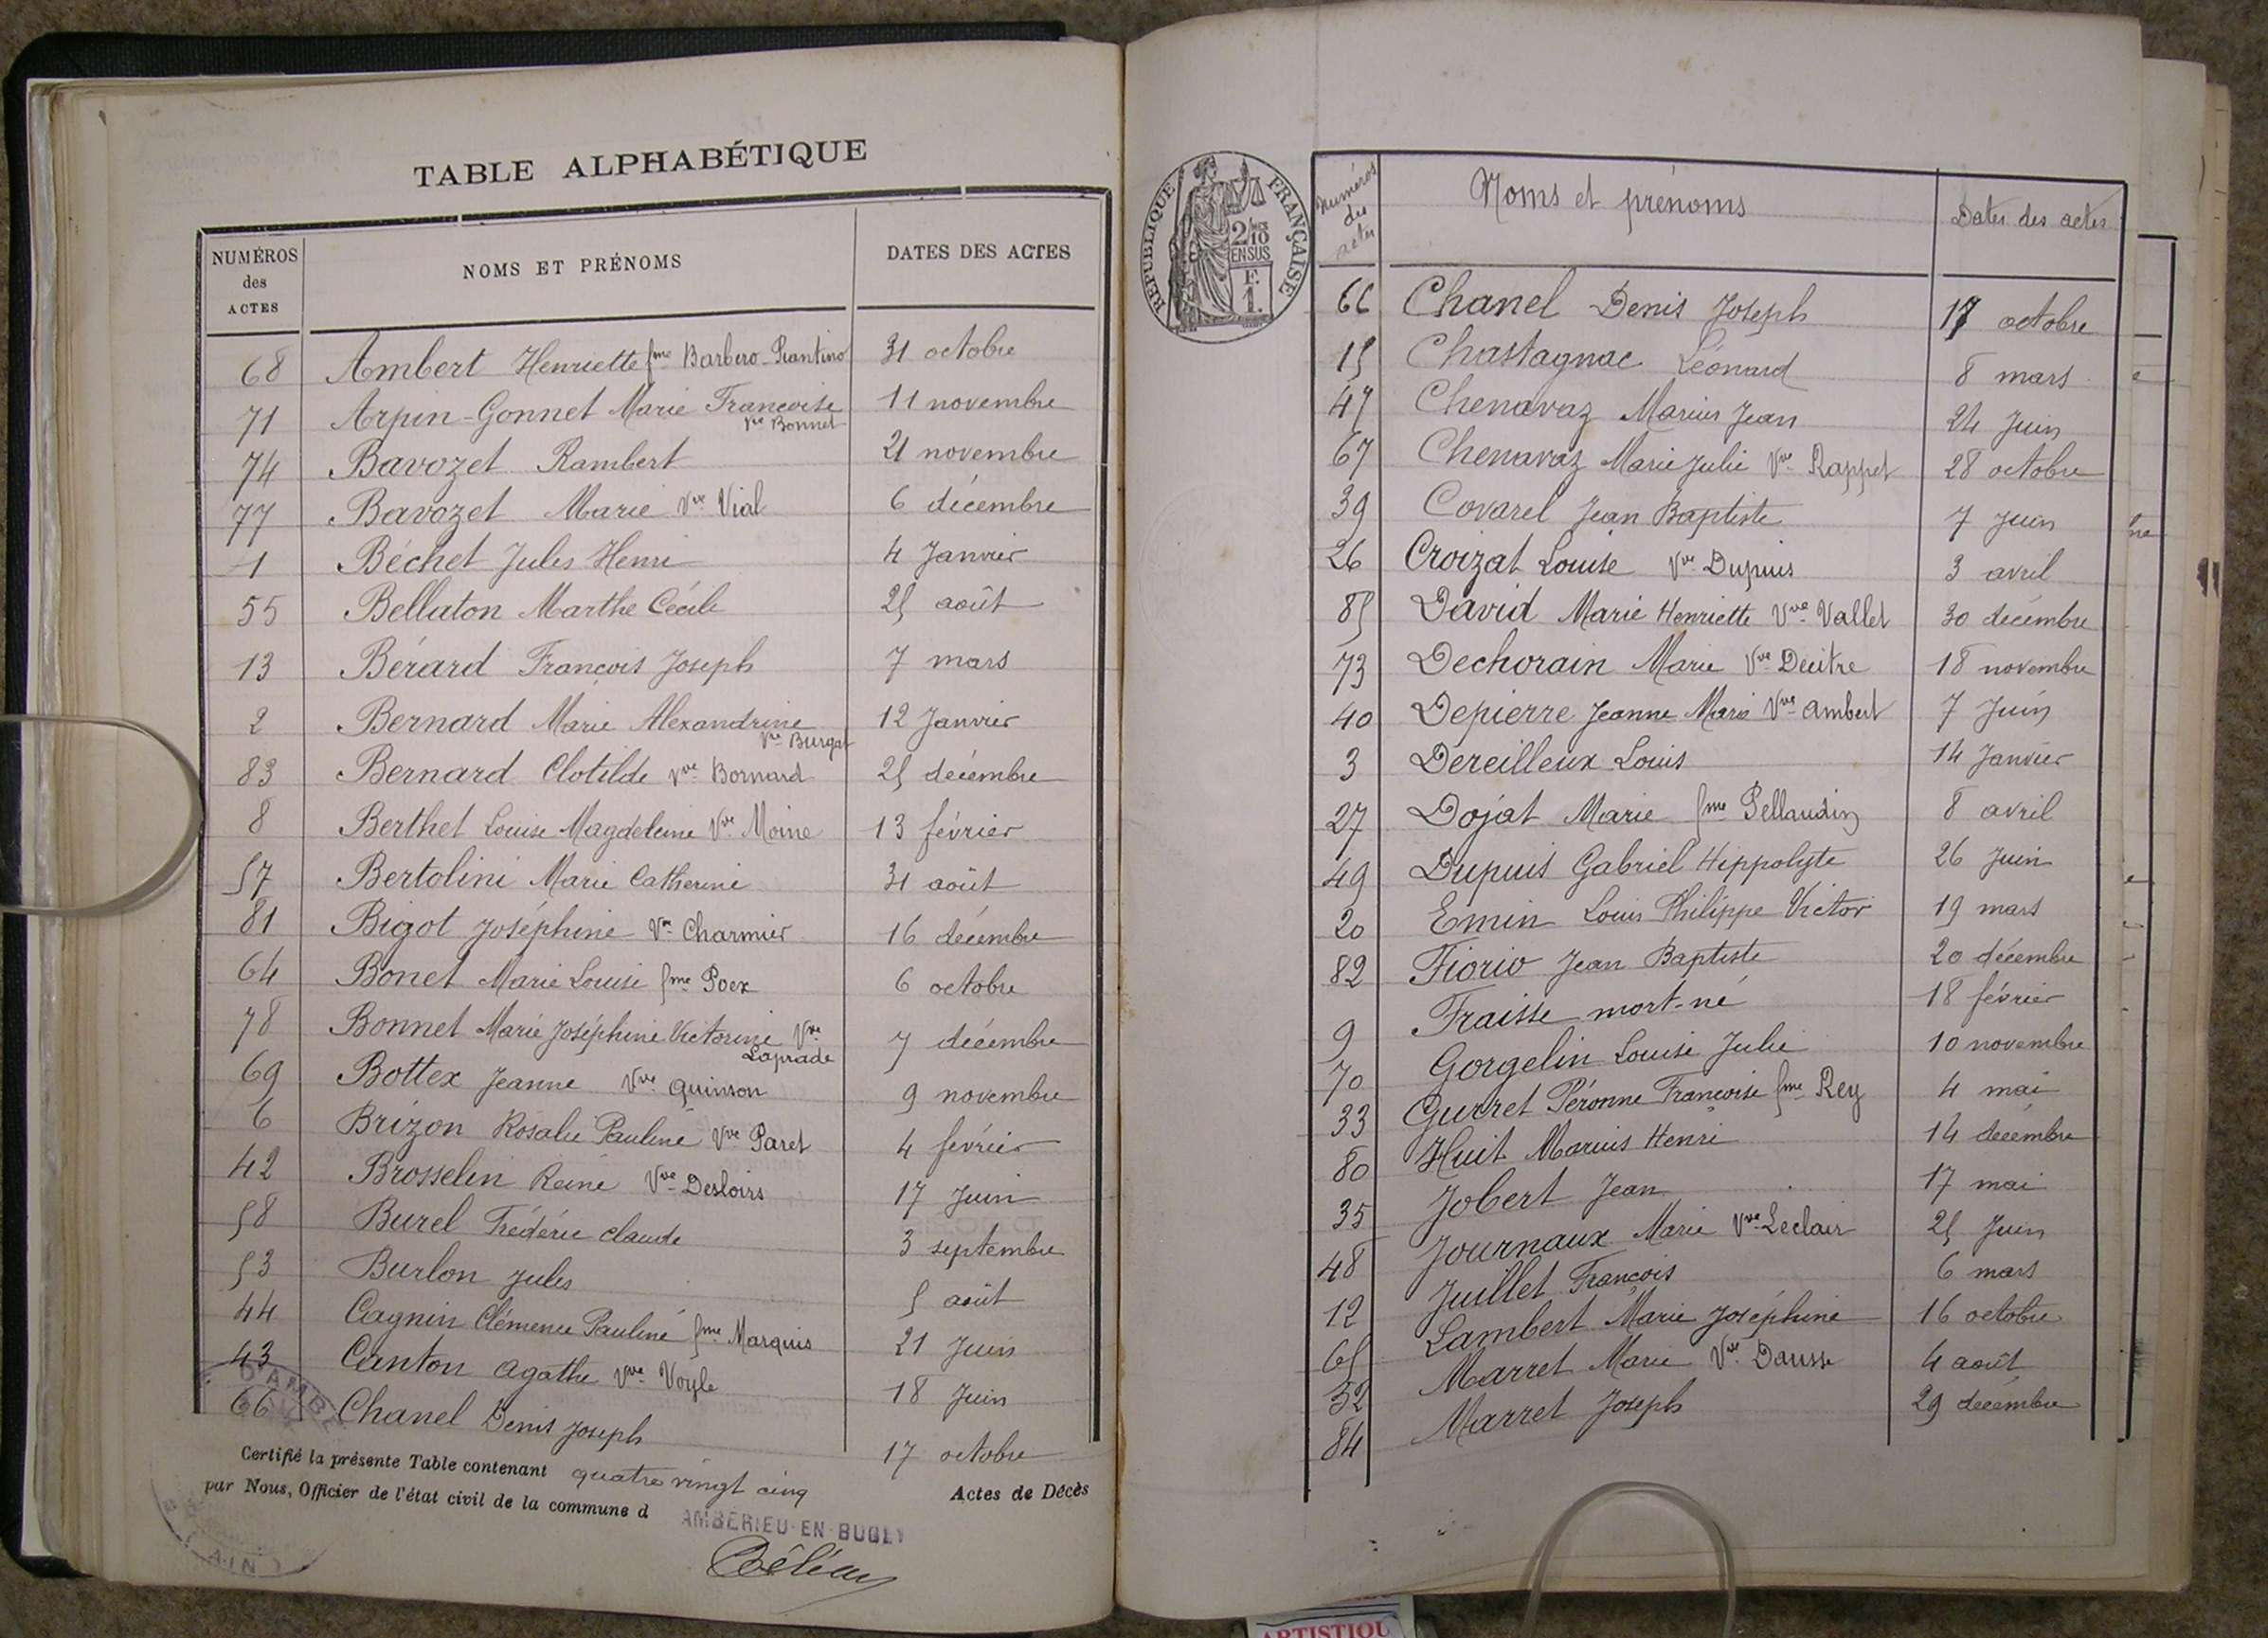 TABLE ALPHABÉTIQUE
NUMÉROS des ACTES NOMS ET PRÉNOMS DATES DES ACTES
68 Ambert Henriette fme Barbero-Piantino 31 octobre
71 Arpin-Gonnet Marie Françoise Vve Bonnet 11 novembre
74 Bavozet Rambert 21 novembre
77 Bavozet Marie Vve Vial 6 décembre
1 Béchet Jules Henri 4 Janvier
55 Bellaton Marthe Cécile 25 août
13 Bérard François Joseph 7 mars
2 Bernard Marie Alexandrine Vve Burgat 12 Janvier
83 Bernard Clotilde Vve Bornard 25 décembre
8 Berthet Louise Magdeleine Vve Moine 13 février
57 Bertolini Marie Catherine 31 août
81 Bigot Joséphine Vve Charmier 16 décembre
64 Bonet Marie Louise fme Poex 6 octobre
78 Bonnet Marie Joséphine Victorine Vve Laprade 7 décembre
69 Bottex Jeanne Vve Quinson 9 novembre
6 Brizon Rosalie Pauline Vve Paret 4 février
42 Brosselin Reine Vve Desloirs 17 Juin
58 Burel Frédéric Claude 3 septembre
53 Burlon Jules 5 août
44 Cagnin Clémence Pauline fme Marquis 21 Juin
43 Canton Agathe Vve Voyle 18 Juin
66 Chanel Denis Joseph 17 octobre
Certifié la présente Table contenant quatre vingt cinq Actes de Décès
par Nous, Officier de l'état civil de la commune d AMBÉRIEU-EN-BUGEY
D'AMBÉ
AIN
RÉPUBLIQUE FRANÇAISE
2/10
EN SUS
F.
1.
Numéros des actes Noms et prénoms Dates des actes
66 Chanel Denis Joseph 17 octobre
15 Chastagnac Léonard 8 mars
47 Chenavaz Marius Jean 24 Juin
67 Chenavaz Marie Julie Vve Rappet 28 octobre
39 Covarel Jean Baptiste 7 Juin
26 Croizat Louise Vve Dupuis 3 avril
85 David Marie Henriette Vve Vallet 30 décembre
73 Dechorain Marie Vve Decitre 18 novembre
40 Depierre Jeanne Marie Vve Ambert 7 Juin
3 Dereilleux Louis 14 Janvier
27 Dojat Marie fme Pellaudin 8 avril
49 Dupuis Gabriel Hippolyte 26 Juin
20 Emin Louis Philippe Victor 19 mars
82 Fiorio Jean Baptiste 20 décembre
9 Fraisse mort-né 18 février
70 Gorgelin Louise Julie 10 novembre
33 Gurret Péronne Françoise fme Rey 4 mai
80 Huit Marius Henri 14 décembre
35 Jobert Jean 17 mai
48 Journaux Marie Vve Leclair 25 Juin
12 Juillet François 6 mars
65 Lambert Marie Joséphine 16 octobre
52 Marret Marie Vve Dausse 4 août
84 Marret Joseph 29 décembre
ARTISTIQU